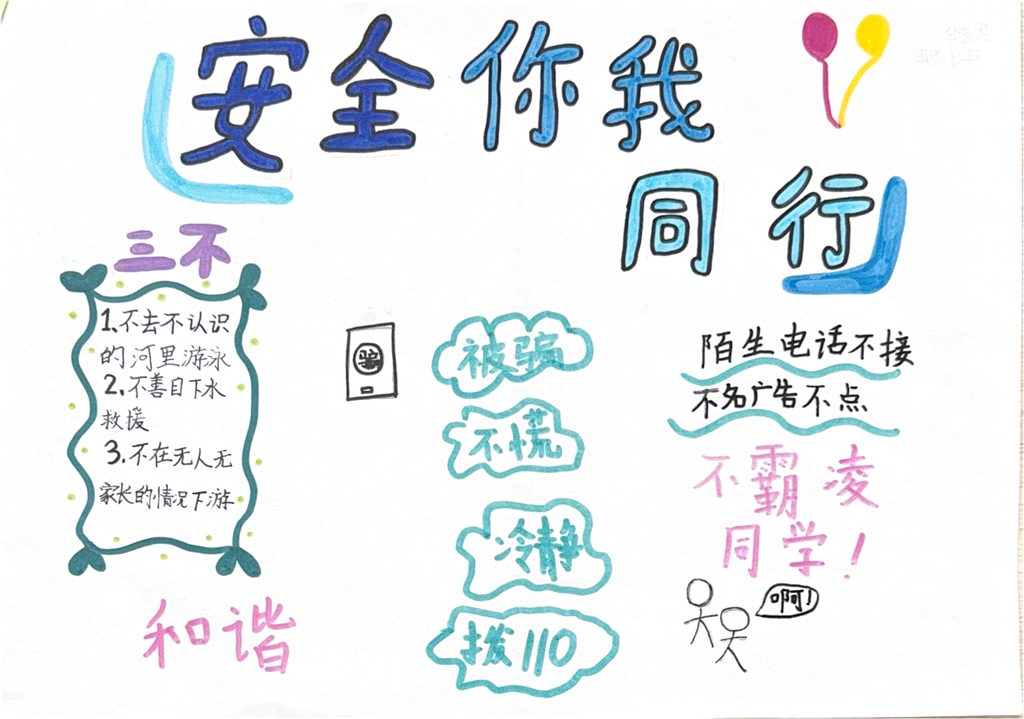 安全你我
同行
三不
1.不去不认识
的河里游泳
2.不善自下水
救援
3.不在无人无
家长的情况下游
和谐
骗
被骗
不慌
冷静
拨110
陌生电话不接
不名广告不点
不霸凌
同学!
啊!